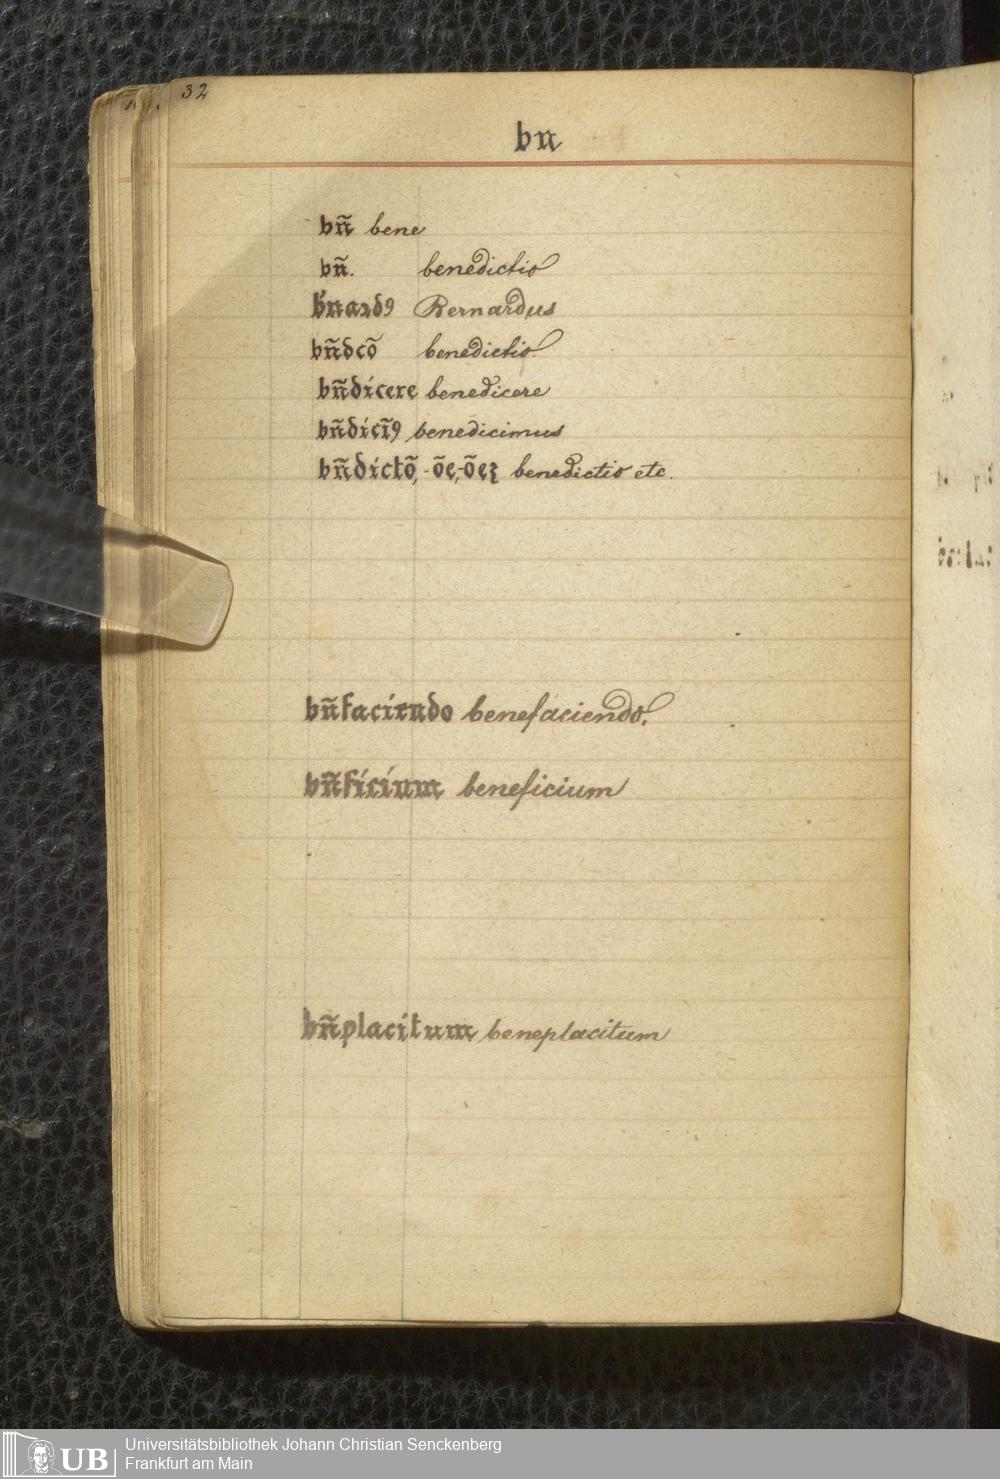 32
bn
bñ bene
bñ. benedictio
b̃nardꝰ Bernardus
bñdcõ benedictio.
bñdicere benedicere
bñdicĩꝰ benedicimus
bñdictõ, -õe, -õeʒ benedictio etc.
bñfaciendo benefaciendo.
bñficium beneficium
bñplacitum beneplacitum
UB
Universitätsbibliothek Johann Christian Senckenberg
Frankfurt am Main